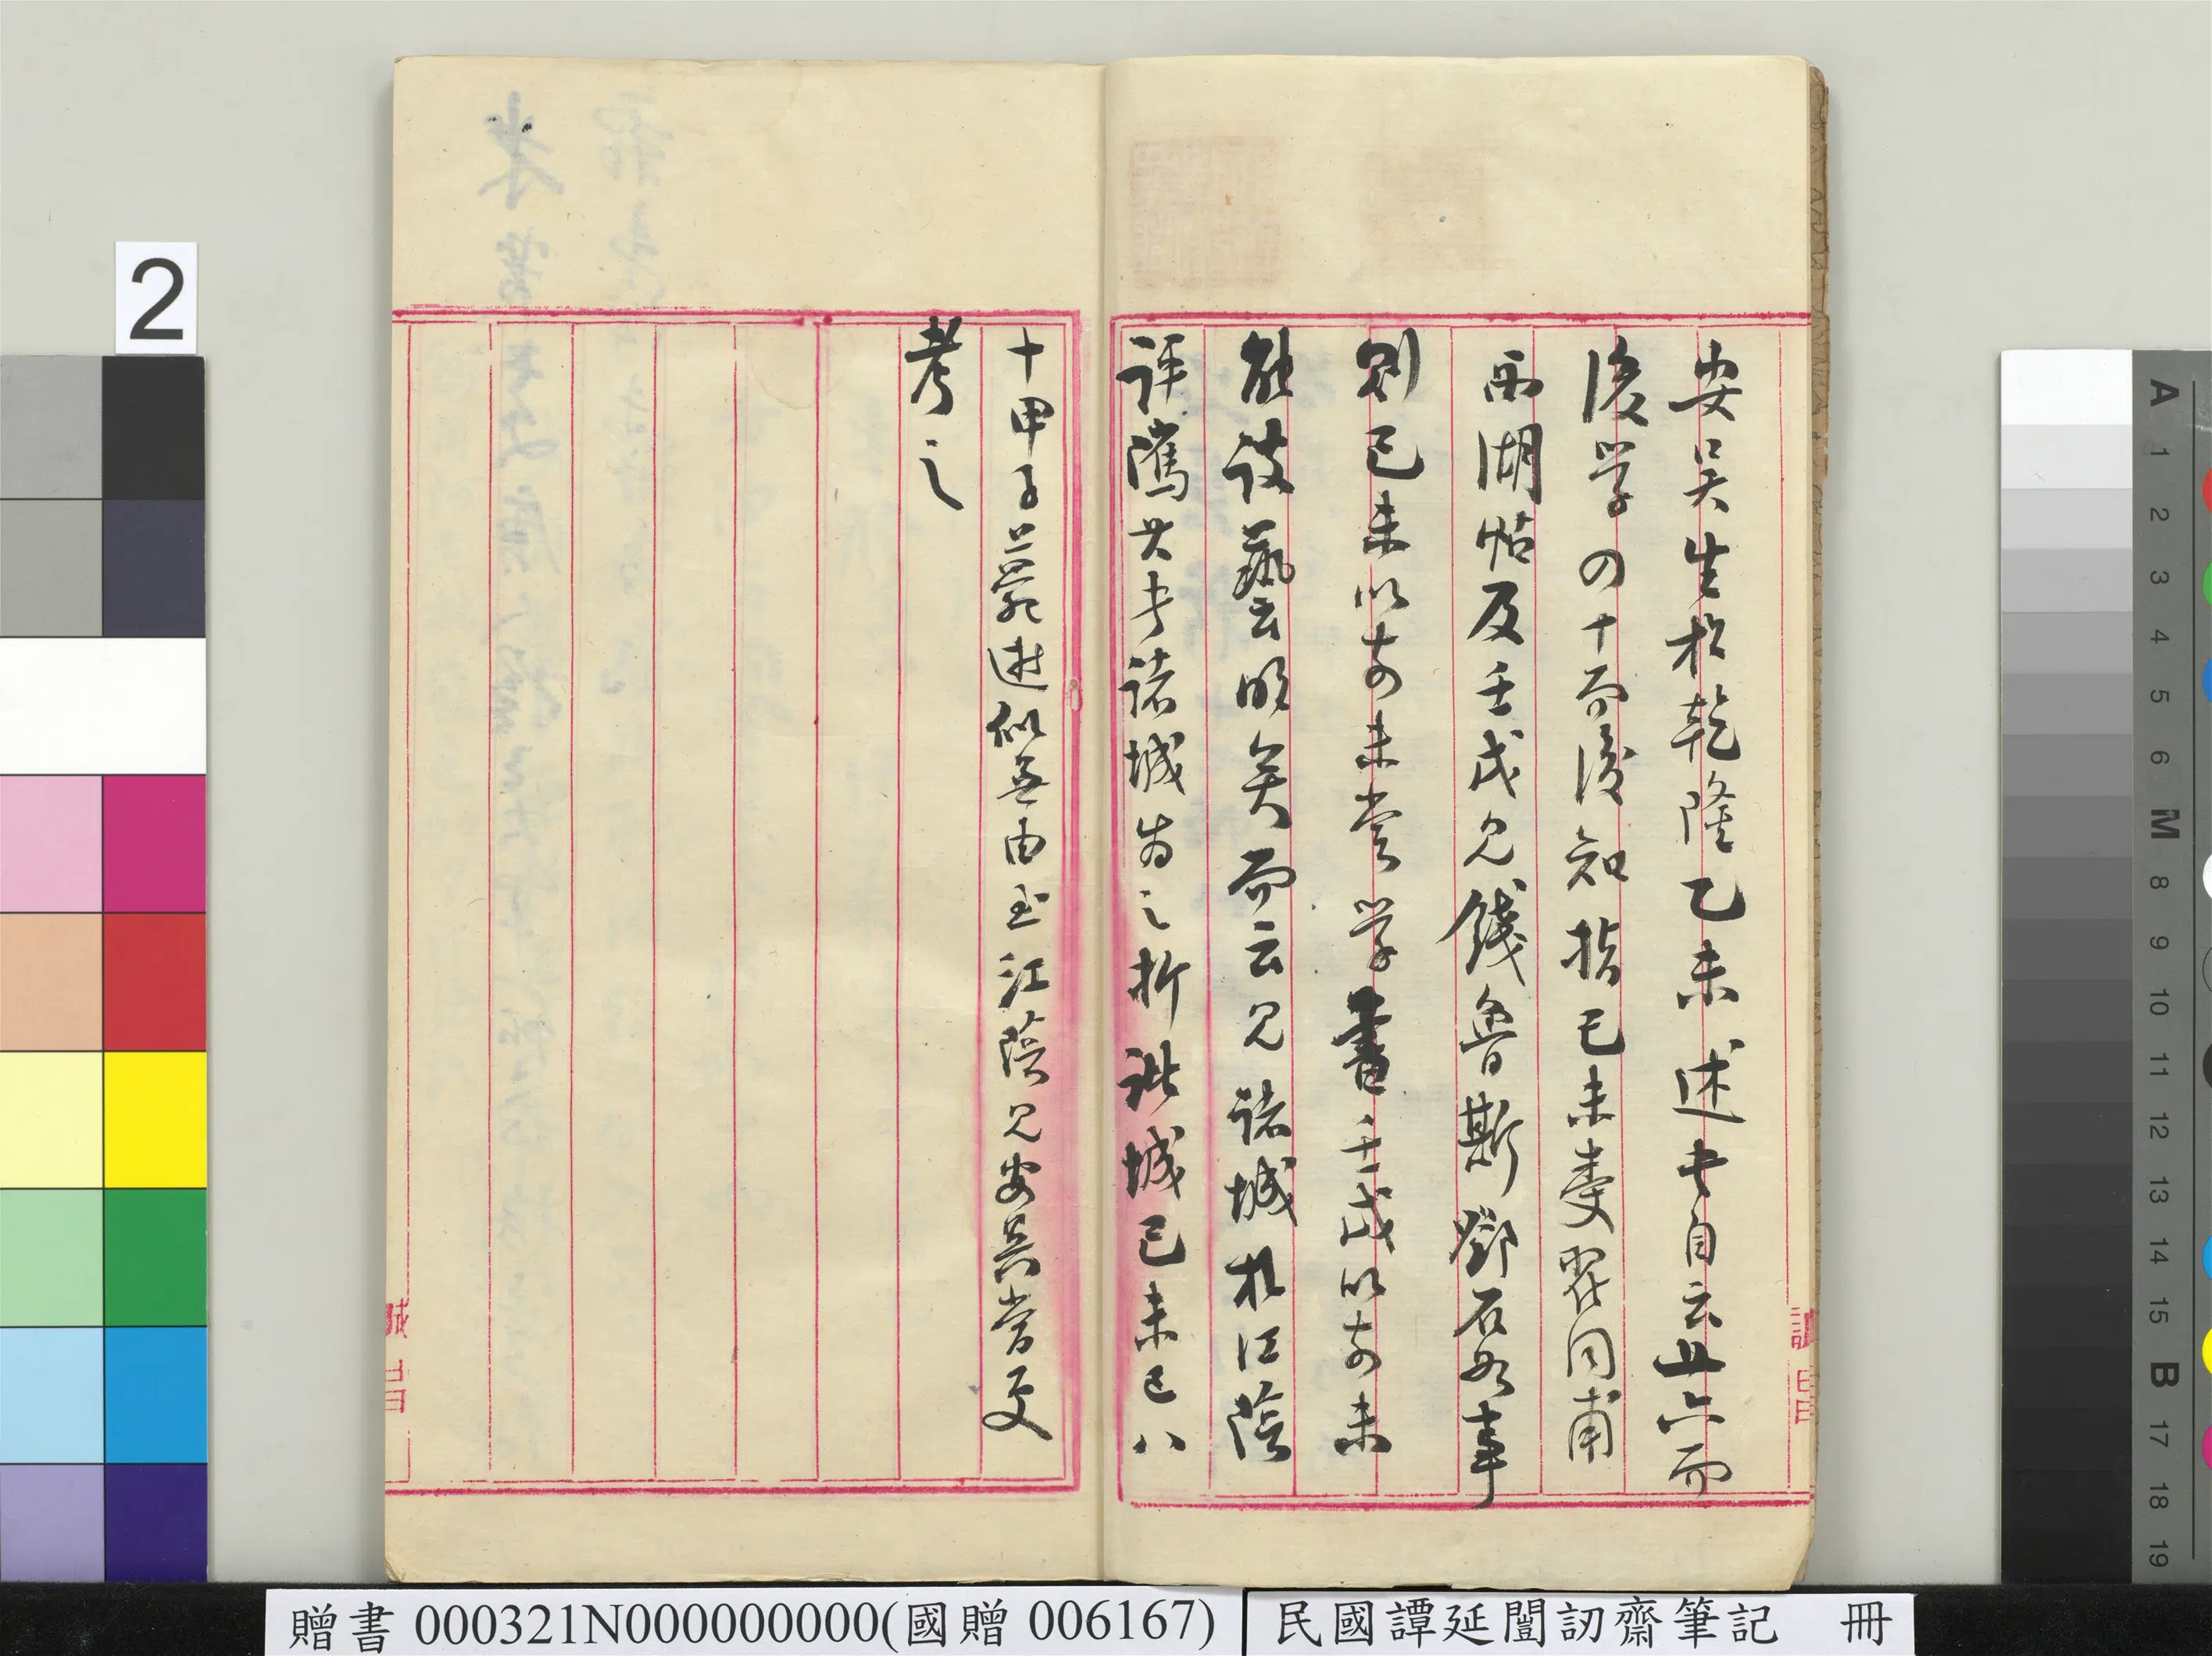 安吳生於乾隆乙未述書自云廿六而
後學四十而後知指己未婁翟同甫
兩湖帖及壬戌見錢魯斯鄧石如事
則己未以前未嘗學書壬戌以前未
能談藝云明矣而云見諸城於江陰
評隲其書諸城為之折諸城己未已八
十甲子
述似無由至江陰見安吳嘗更
考之
2
贈書 000321N000000000(國贈 006167)
民國譚延闓訒齋筆記 冊
A 1 2 3 4 5 6 M 8 9 10 11 12 13 14 15 B 17 18 19